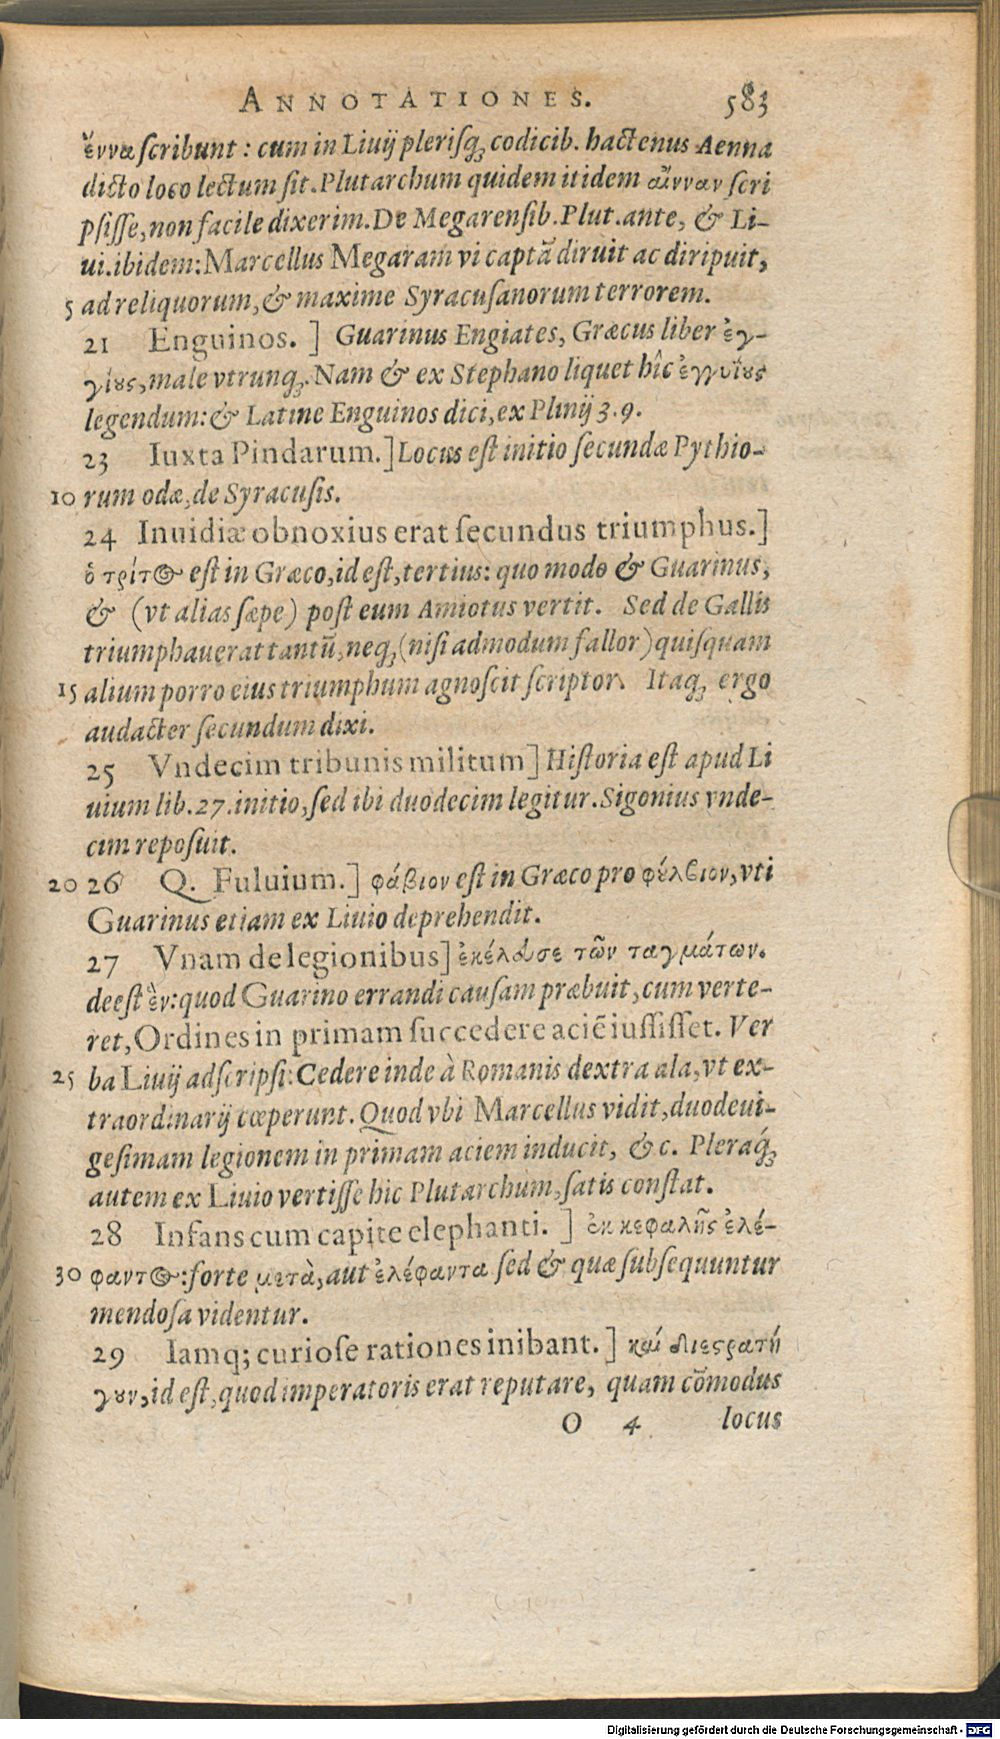 ANNOTATIONES. 583
ἔννα scribunt: cum in Liuij plerisq; codicib. hactenus Aenna
dicto loco lectum sit. Plutarchum quidem itidem αἴνναν scri
psisse, non facile dixerim. De Megarensib. Plut. ante, & Li-
ui. ibidem: Marcellus Megaram vi captā diruit ac diripuit,
5 ad reliquorum, & maxime Syracusanorum terrorem.
21 Enguinos. ] Guarinus Engiates, Græcus liber ἐγ-
γίους, male vtrunq;. Nam & ex Stephano liquet hîc ἐγγυΐους
legendum: & Latine Enguinos dici, ex Plinij 3. 9.
23 Iuxta Pindarum. ] Locus est initio secundæ Pythio-
10 rum odæ, de Syracusis.
24 Inuidiæ obnoxius erat secundus triumphus. ]
ὁ τρίτος est in Græco, id est, tertius: quo modo & Guarinus,
& (vt alias sæpe) post eum Amiotus vertit. Sed de Gallis
triumphauerat tantū, neq; (nisi admodum fallor) quisquam
15 alium porro eius triumphum agnoscit scriptor. Itaq; ergo
audacter secundum dixi.
25 Vndecim tribunis militum ] Historia est apud Li
uium lib. 27. initio, sed ibi duodecim legitur. Sigonius vnde-
cim reposuit.
20 26 Q. Fuluium. ] φάβιον est in Græco pro φύλβιον, vti
Guarinus etiam ex Liuio deprehendit.
27 Vnam de legionibus ] ἐκέλευσε τῶν ταγμάτων.
deest ἓν: quod Guarino errandi causam præbuit, cum verte-
ret, Ordines in primam succedere aciē iussisset. Ver
25 ba Liuij adscripsi: Cedere inde à Romanis dextra ala, vt ex-
traordinarij cœperunt. Quod vbi Marcellus vidit, duodeui-
gesimam legionem in primam aciem inducit, & c. Pleraq;
autem ex Liuio vertisse hic Plutarchum, satis constat.
28 Infans cum capite elephanti. ] ἐκ κεφαλῆς ἐλέ-
30 φαντος: forte μετὰ, aut ἐλέφαντα sed & quæ subsequuntur
mendosa videntur.
29 Iamq; curiose rationes inibant. ] καὶ διεστρατή
γουν, id est, quod imperatoris erat reputare, quam cōmodus
O 4 locus
Digitalisierung gefördert durch die Deutsche Forschungsgemeinschaft - DFG